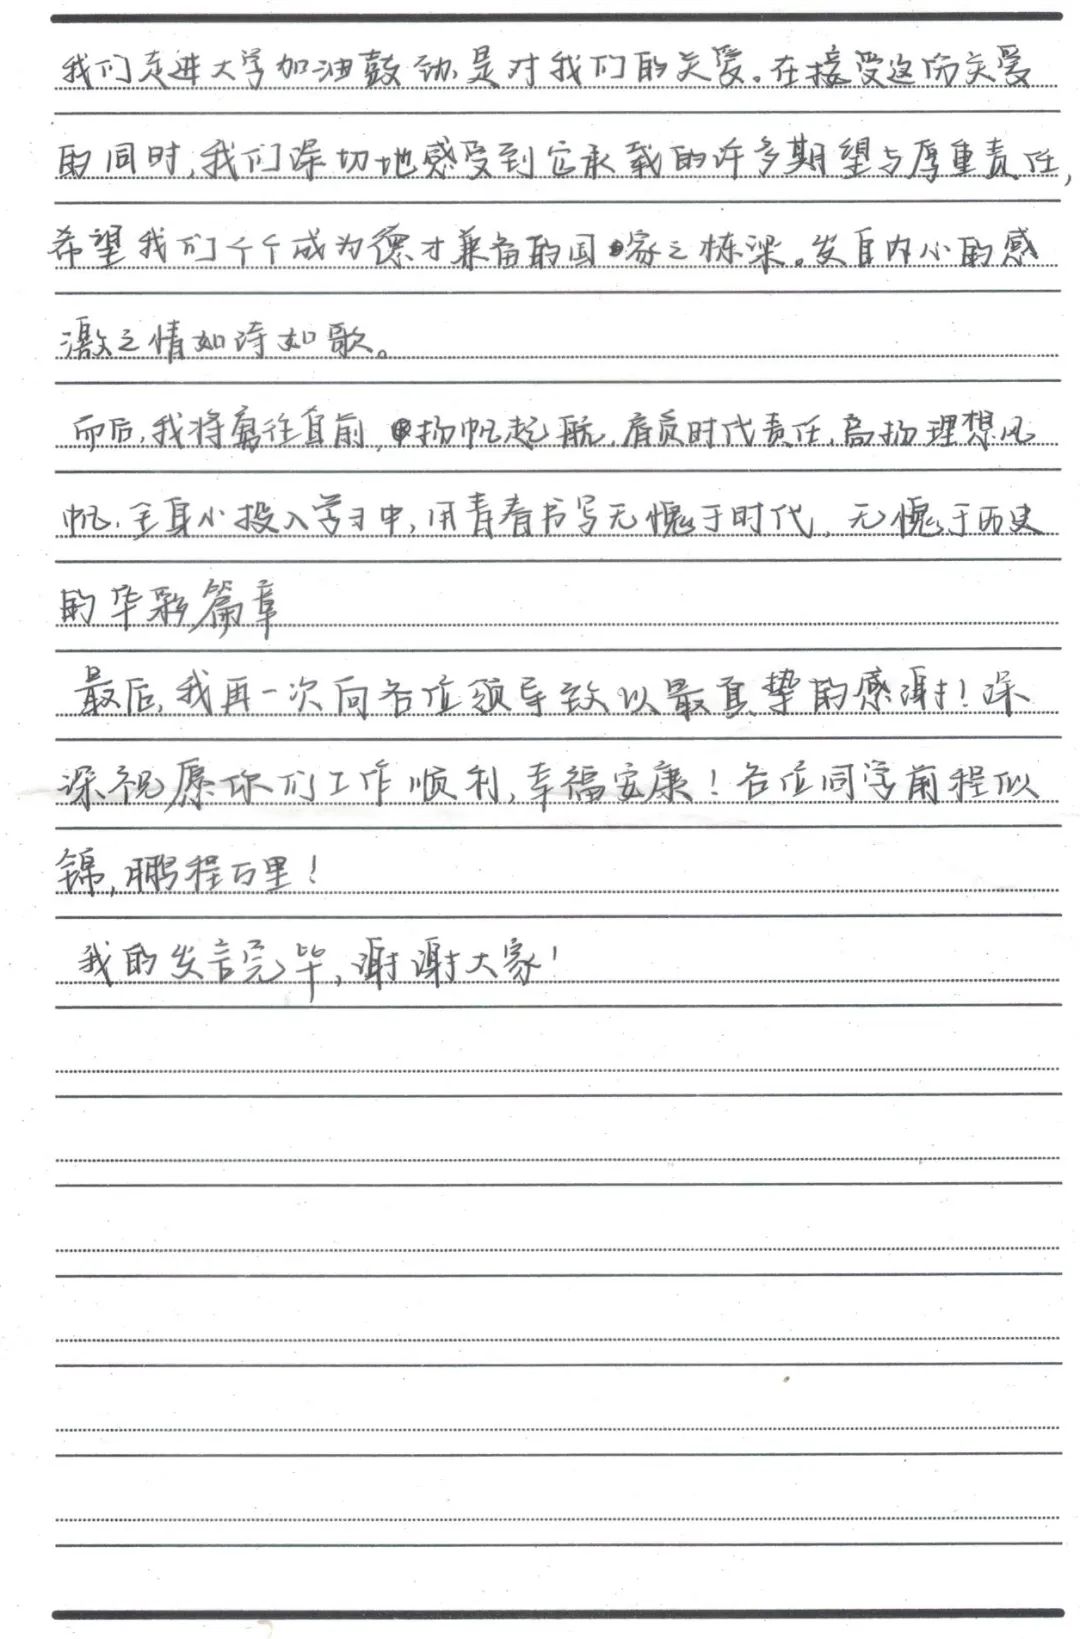 我们走进大学加油鼓劲,是对我们的关爱。在接受这份关爱
的同时,我们深切地感受到它承载的许多期望与厚重责任,
希望我们个个成为德才兼备的国家之栋梁。发自内心的感
激之情如诗如歌。
而后,我将奮往直前,扬帆起航,肩负时代责任,高扬理想风
帆,全身心投入学习中,用青春书写无愧于时代,无愧于历史
的华彩篇章
最后,我再一次向各位领导致以最真挚的感谢!深
深祝愿你们工作顺利,幸福安康!各位同学前程似
锦,鹏程万里!
我的发言完毕,谢谢大家!